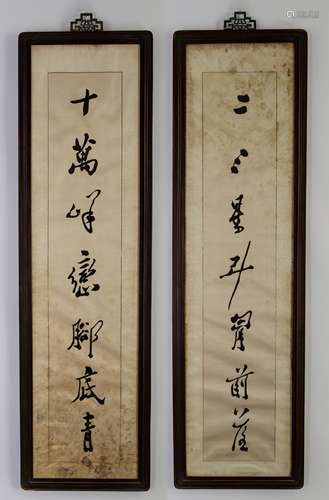 二三星斗胷前落
十萬峰巒腳底青